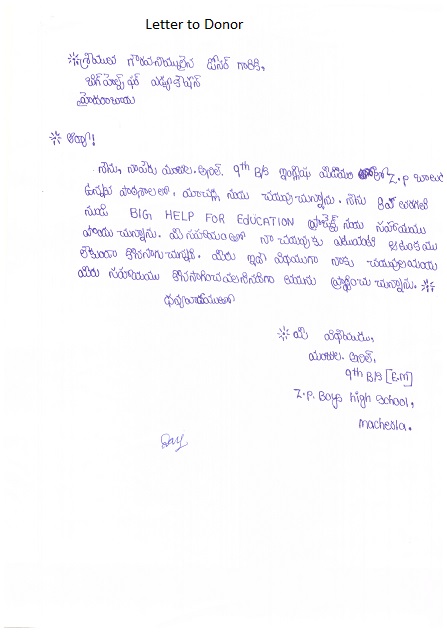 Letter to Donor
శ్రీయుత గౌరవనీయులైన డోనర్ గారికి,
బిగ్ హెల్ప్ ఫర్ ఎడ్యుకేషన్
హైదరాబాదు
అయ్యా!
నేను, నాపేరు అనిల్, 9th B/S ఇంగ్లీషు మీడియం Z.P బాలుర
ఉన్నత పాఠశాలలో, మాచర్ల నందు చదువుచున్నాను. నేను 8వ తరగతి
నుండి BIG HELP FOR EDUCATION ప్రాజెక్ట్ నందు సహాయము
పొందుచున్నాను. మీ సహాయంతో నా చదువుకు ఎటువంటి ఆటంకము
లేకుండా కొనసాగుచున్నది. మీరు ఇదే విధముగా నాకు చదువు
మీరు సహాయము కొనసాగించవలసినదిగా ప్రార్థించుచున్నాను.
ధన్యవాదములతో
మీ విధేయుడు,
అనిల్,
9th B/S [E.M]
Z.P. Boys high School,
Macherla.